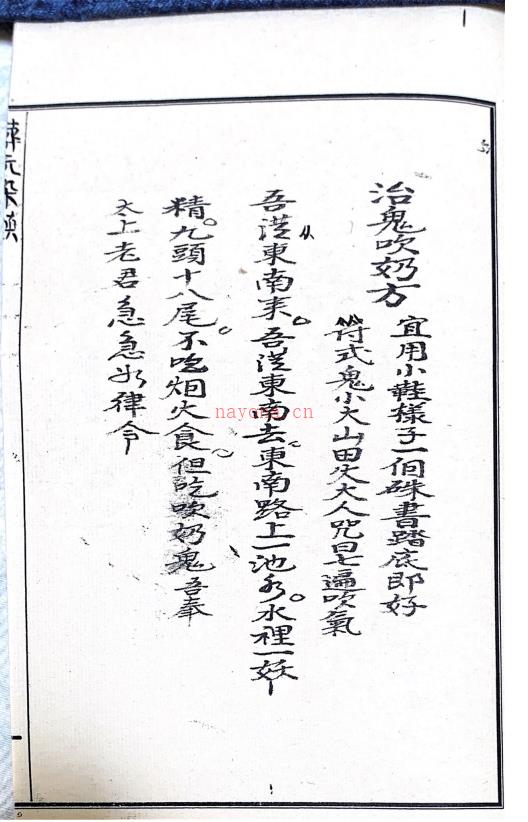 治鬼吹奶方
宜用小鞋樣子一個硃書踏底即好
符式鬼小大山田火大人咒曰七遍吹氣
吾從東南来。吾從東南去東南路上一池水。水裡一妖
从
精。九頭十八尾。不吃烟火食但吃吹奶鬼吾奉
太上老君急急如律令
nayona.cn